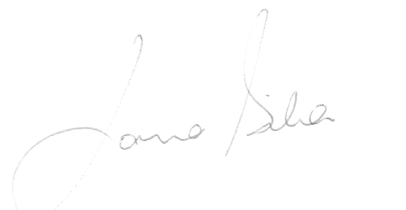 Jana Silva